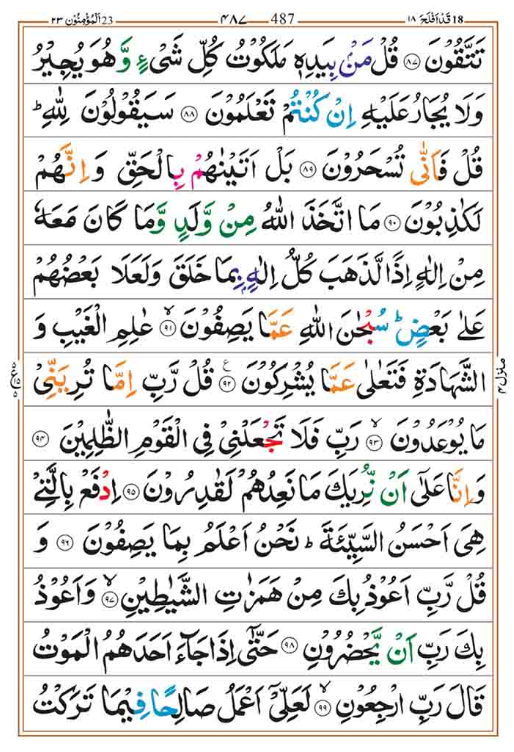 18 قَدۡ اَفۡلَحَ ١٨ ٤٨٧ 487 23 اَلۡمُؤۡمِنُوۡن ٢٣
تَتَّقُوۡنَ ﴿۸۷﴾ قُلۡ مَنۡۢ بِيَدِهٖ مَلَكُوۡتُ كُلِّ شَىۡءٍ وَّ هُوَ يُجِيۡرُ
وَلَا يُجَارُ عَلَيۡهِ اِنۡ كُنۡتُمۡ تَعۡلَمُوۡنَ ﴿۸۸﴾ سَيَقُوۡلُوۡنَ لِلّٰهِ ؕ
قُلۡ فَاَنّٰى تُسۡحَرُوۡنَ ﴿۸۹﴾ بَلۡ اَتَيۡنٰهُمۡ بِالۡحَقِّ وَاِنَّهُمۡ
لَكٰذِبُوۡنَ ﴿۹۰﴾ مَا اتَّخَذَ اللّٰهُ مِنۡ وَّلَدٍ وَّمَا كَانَ مَعَهٗ
مِنۡ اِلٰهٍ اِذًا لَّذَهَبَ كُلُّ اِلٰهٍۢ بِمَا خَلَقَ وَلَعَلَا بَعۡضُهُمۡ
عَلٰى بَعۡضٍ ؕ سُبۡحٰنَ اللّٰهِ عَمَّا يَصِفُوۡنَ ۙ﴿۹۱﴾ عٰلِمِ الۡغَيۡبِ وَ
الشَّهَادَةِ فَتَعٰلٰى عَمَّا يُشۡرِكُوۡنَ ﴿۹۲﴾ ع قُلْ رَّبِّ اِمَّا تُرِيَنِّىۡ
مَا يُوۡعَدُوۡنَ ۙ﴿۹۳﴾ رَبِّ فَلَا تَجۡعَلۡنِىۡ فِى الۡقَوۡمِ الظّٰلِمِيۡنَ ﴿۹۴﴾
وَاِنَّا عَلٰٓى اَنۡ نُّرِيَكَ مَا نَعِدُهُمۡ لَقٰدِرُوۡنَ ﴿۹۵﴾ اِدۡفَعۡ بِالَّتِىۡ
هِىَ اَحۡسَنُ السَّيِّئَةَ ؕ نَحۡنُ اَعۡلَمُ بِمَا يَصِفُوۡنَ ﴿۹۶﴾ وَ
قُلْ رَّبِّ اَعُوۡذُ بِكَ مِنۡ هَمَزٰتِ الشَّيٰطِيۡنِ ۙ﴿۹۷﴾ وَاَعُوۡذُ
بِكَ رَبِّ اَنۡ يَّحۡضُرُوۡنِ ﴿۹۸﴾ حَتّٰٓى اِذَا جَآءَ اَحَدَهُمُ الۡمَوۡتُ
قَالَ رَبِّ ارۡجِعُوۡنِ ۙ﴿۹۹﴾ لَعَلِّىۡۤ اَعۡمَلُ صَالِحًـا فِيۡمَا تَرَكۡتُ
منزل ٤